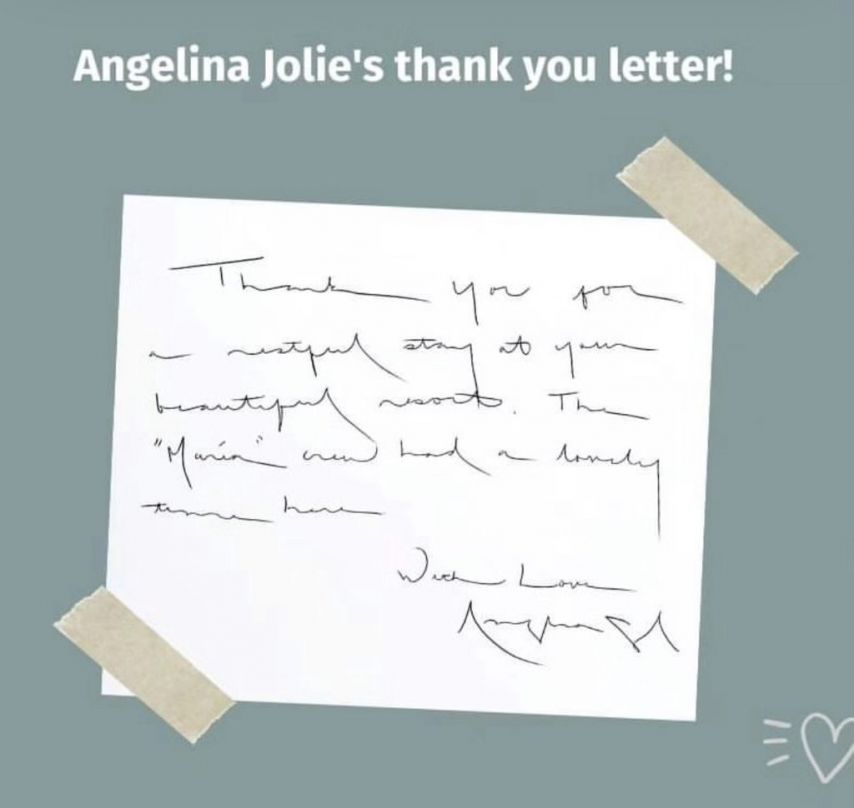 Angelina Jolie's thank you letter!
Thank you for
a restful stay at your
beautiful resort. The
"Maria" crew had a lovely
time here
With Love
Angelina Jol